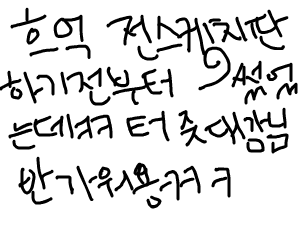 흐억 전스케치판
하기전부터 있었
는데켜켜 터줏대감님
반가워용켜켜